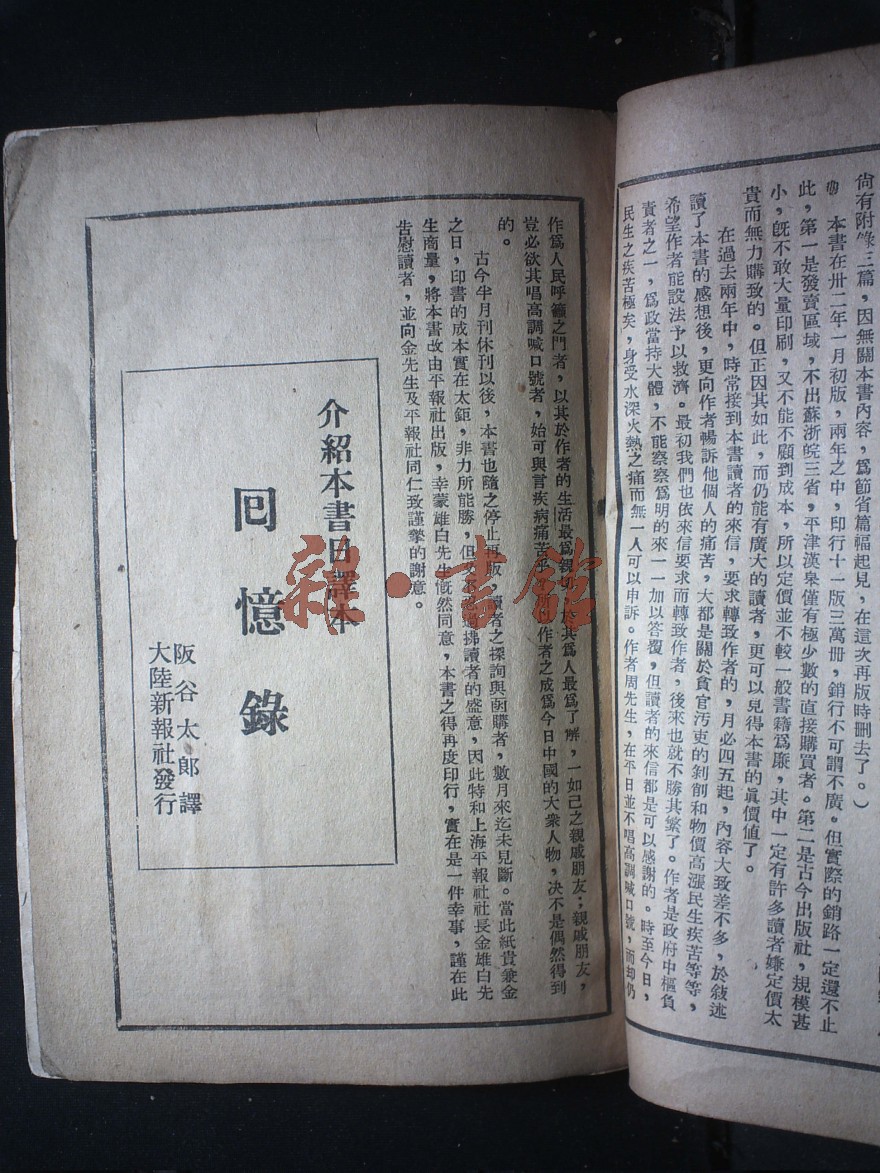 尙有附錄三篇，因無關本書內容，爲節省篇幅起見，在這次再版時删去了。）
本書在卅二年一月初版，兩年之中，印行十一版三萬册，銷行不可謂不廣。但實際的銷路一定還不止
此，第一是發賣區域，不出蘇浙皖三省，平津漢臬僅有極少數的直接購買者。第二是古今出版社，規模甚
小，旣不敢大量印刷，又不能不顧到成本，所以定價並不較一般書籍爲廉，其中一定有許多讀者嫌定價太
貴而無力購致的。但正因其如此，而仍能有廣大的讀者，更可以見得本書的眞價值了。
在過去兩年中，時常接到本書讀者的來信，要求轉致作者的，月必四五起，內容大致差不多，於敍述
讀了本書的感想後，更向作者暢訴他個人的痛苦，大都是關於貪官汚吏的剝削和物價高漲民生疾苦等等，
希望作者能設法予以救濟。最初我們也依來信要求而轉致作者，後來也就不勝其繁了。作者是政府中樞負
責者之一，爲政當持大體，不能察察爲明的來一一加以答覆，但讀者的來信都是可以感謝的。時至今日，
民生之疾苦極矣，身受水深火熱之痛而無一人可以申訴。作者周先生，在平日並不唱高調喊口號，而却仍
作爲人民呼籲之門者，以其於作者的生活最爲親切，於其爲人最爲了解，一如己之親戚朋友；親戚朋友，
豈必欲其唱高調喊口號者，始可與言疾病痛苦乎？作者之成爲今日中國的大衆人物，决不是偶然得到
的。
古今半月刊休刋以後，本書也隨之停止再版，讀者之探詢與函購者，數月來迄未見斷。當此紙貴兼金
之日，印書的成本實在太鉅，非力所能勝，但又不忍過拂讀者的盛意，因此特和上海平報社社長金雄白先
生商量，將本書改由平報社出版，幸蒙雄白先生慨然同意，本書之得再度印行，實在是一件幸事，謹在此
告慰讀者，並向金先生及平報社同仁致謹摯的謝意。
介紹本書日譯本
囘憶錄
阪谷太郎譯
大陸新報社發行
雜·書館